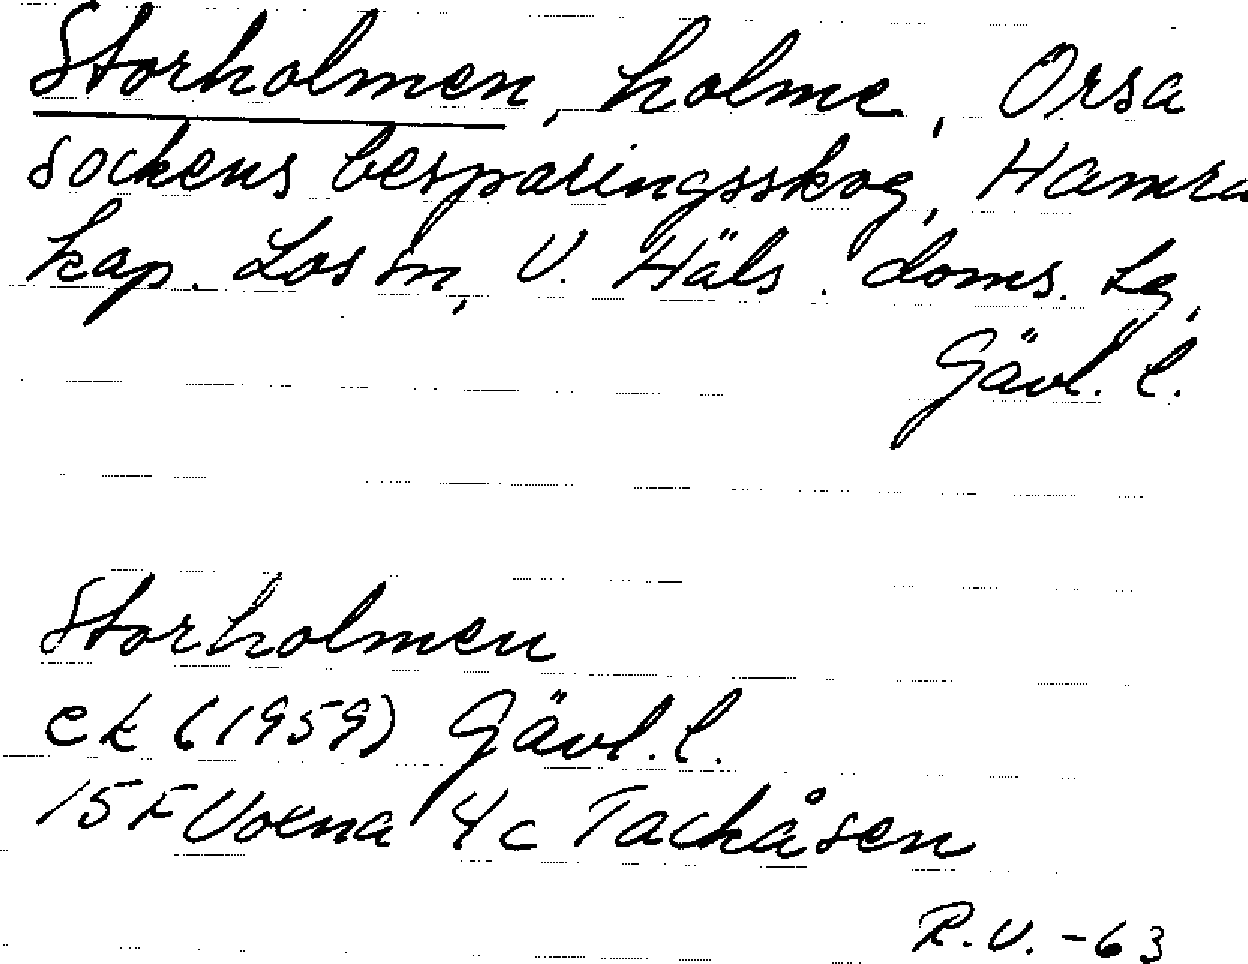 Storholmen, holme, Orsa
sockens besparingsskog, Hamra
kap. Los sn, V. Häls. doms. lg,
Gävl. l.
Storholmen
ek (1959) Gävl. l.
15 F Voxna 4c Tackåsen
R.V. -63